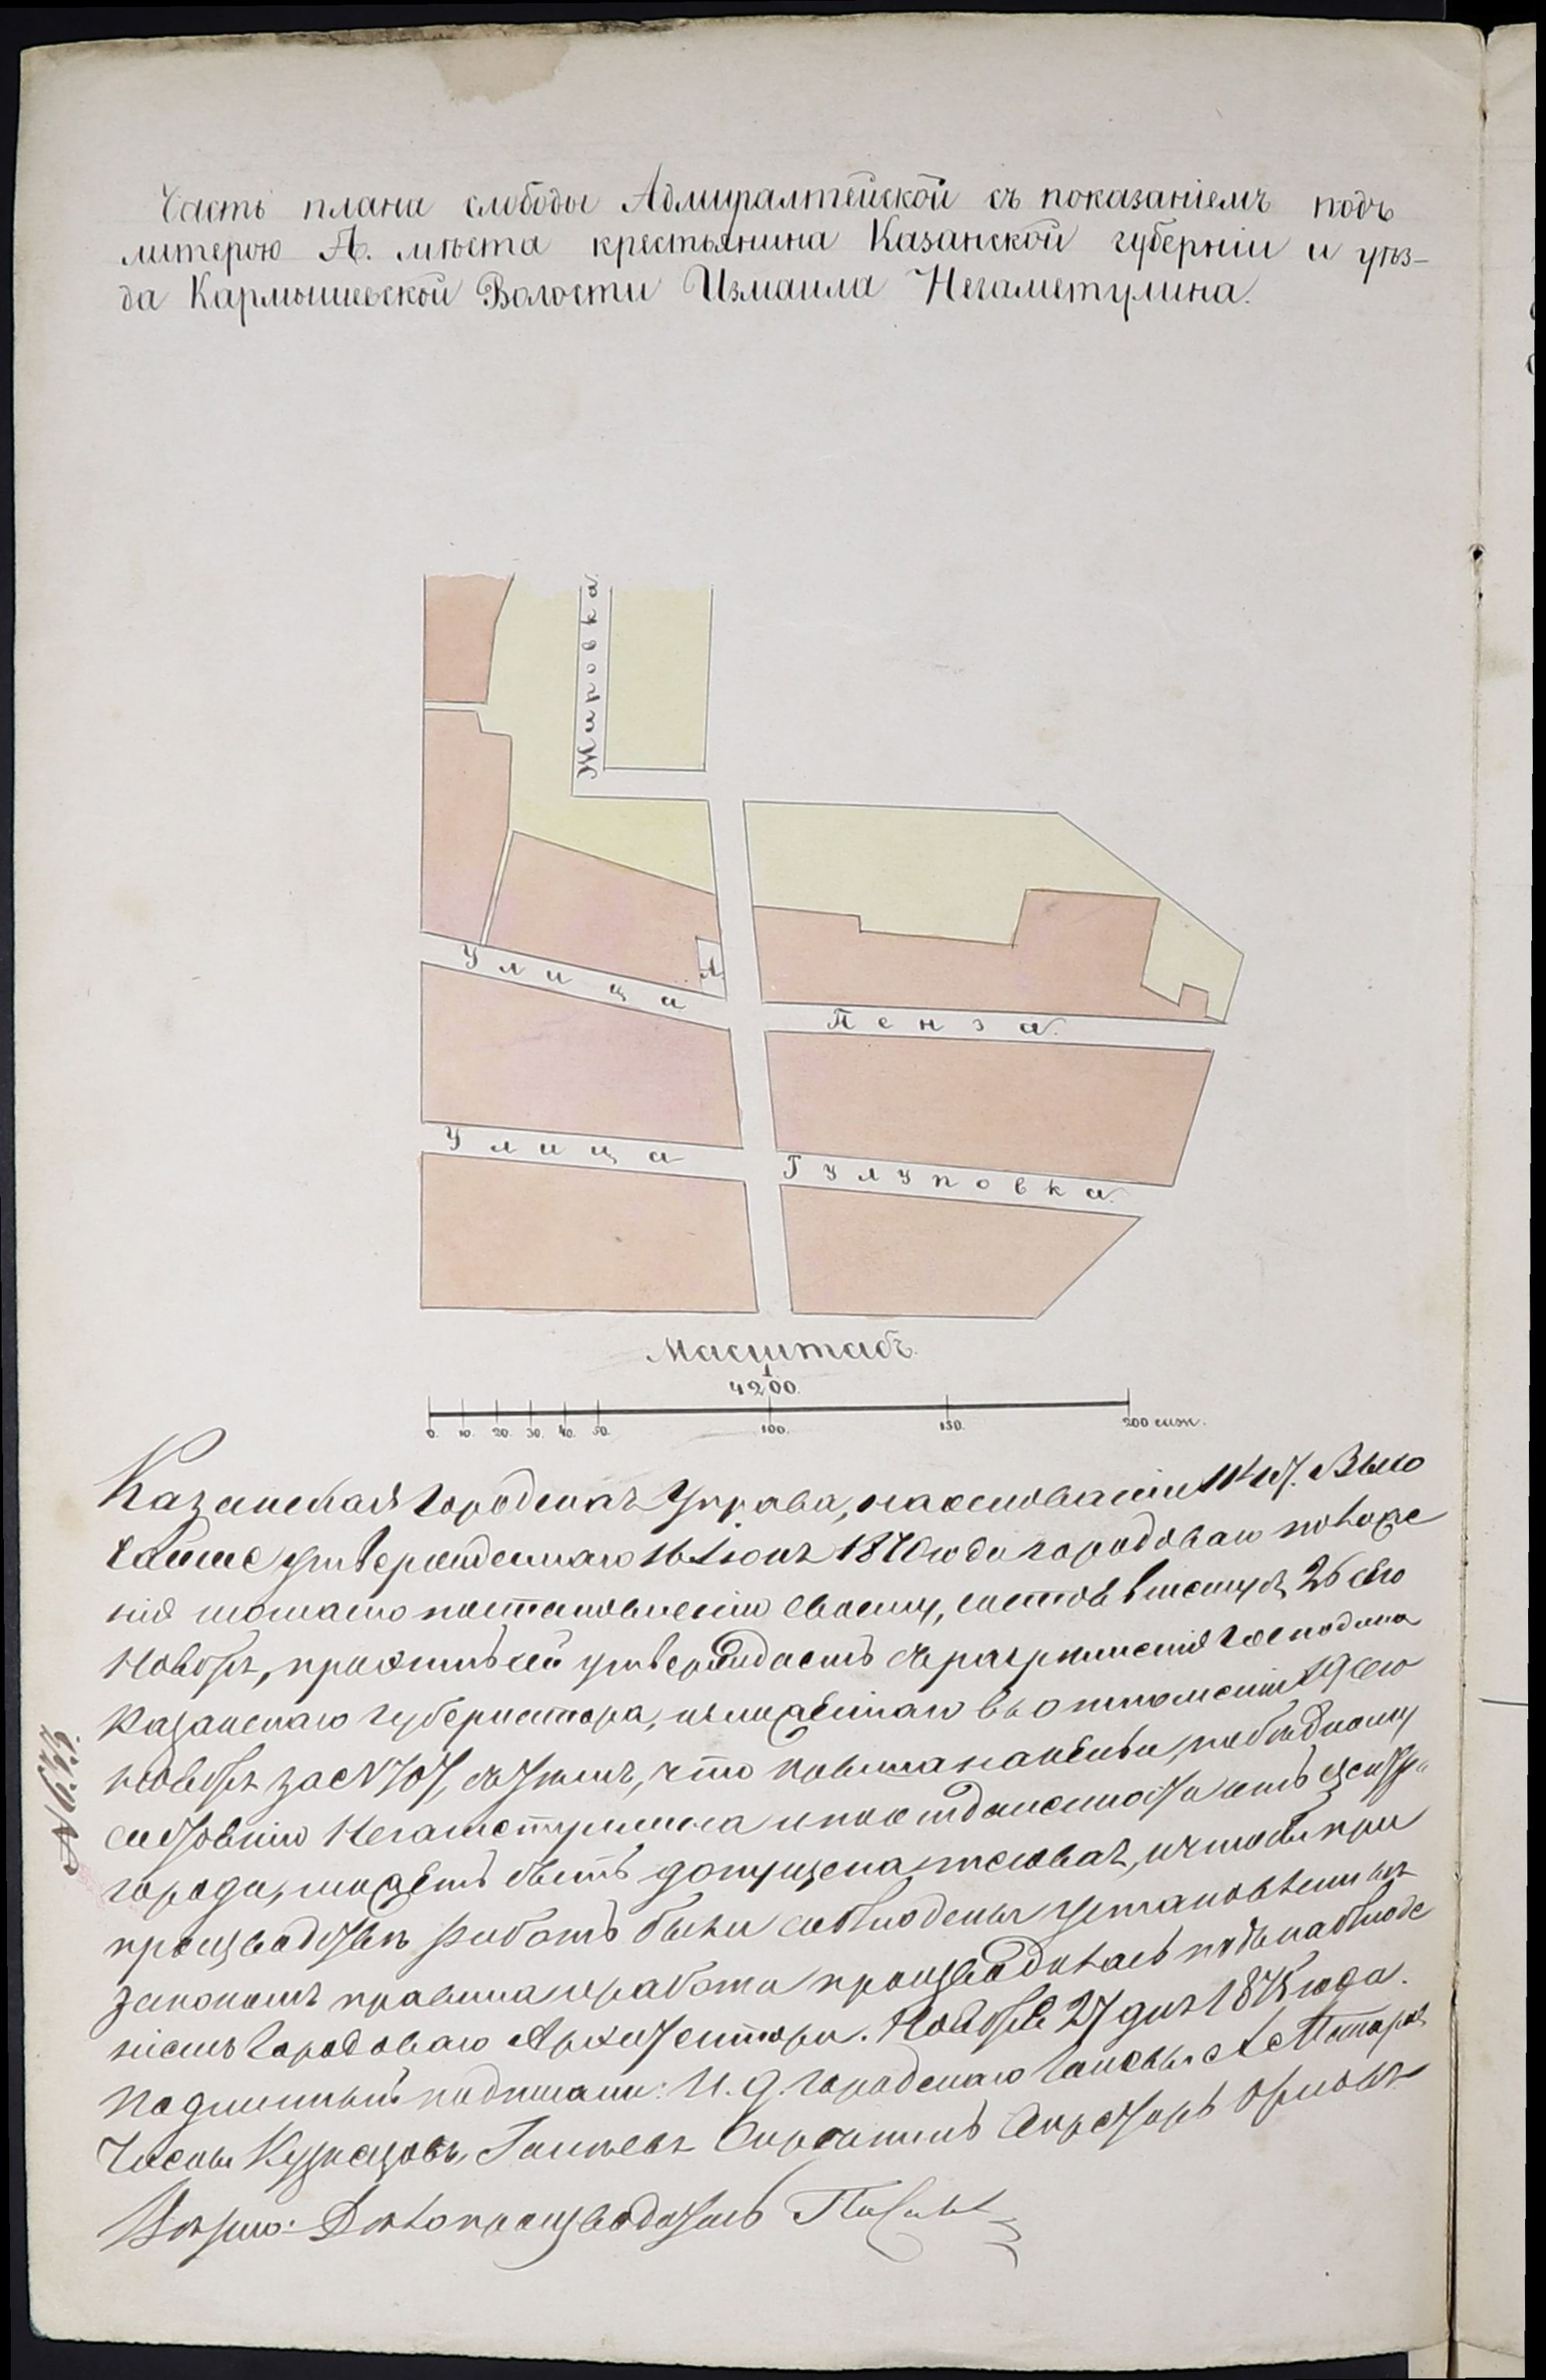 Часть плана слободы Адмиралтейской съ показаніемъ подъ
литерою А. мѣста крестьянина Казанской губерніи и уѣз-
да Кармышевской Волости Измаила Негаметулина.
Жировка
А.
Улица
Пенза.
Улица
Тулуповка.
Масштабъ.
1
4200.
0. 10. 20. 30. 40. 50. 100. 150. 200 саж.
Казанская Городская Управа, на основаніи ст. Высо
чайше утвержденнаго 16 Іюня 1870 года городоваго положе
нія согласно постановленію своему, состоявшемуся 26 сего
Ноября, проэктъ сей утверждаетъ съ разрѣшенія Господина
Казанскаго Губернатора, изложеннаго въ отношеніи 19 сего
Ноября за № съ тѣмъ, что по
Негаметулина и по отдаленности отъ центра
города, можетъ быть допущена и чтобы при
производствѣ работъ были соблюдены установленныя
закономъ правила и работы производились подъ наблюде
ніемъ Городоваго Архитектора. Ноября 27 дня 1875 года.
Подлинный подписали: И. д. Городскаго Головы
Члены Кузнецовъ, Секретарь Орловъ
Вѣрно: Дѣлопроизводитель
№ 633.